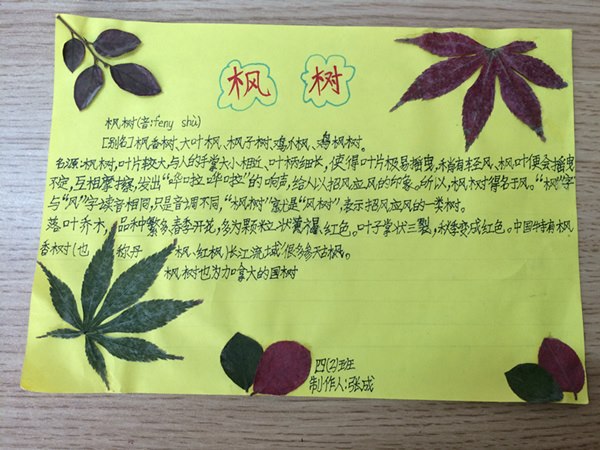 枫 树
枫树(音:feng shù)
[别名]枫香树、大叶枫、枫子树、鸡爪枫、鸡枫树。
名源:枫树,叶片较大与人的手掌大小相近、叶柄细长,使得叶片极易摇曳,稍有轻风、枫叶便会摇曳
不定,互相摩擦,发出“哗啦哗啦”的响声,给人以招风应风的印象。所以,枫树得名于风。“枫”字
与“风”字读音相同,只是音调不同,“枫树”意就是“风树”,表示招风应风的一类树。
落叶乔木,品种繁多,春季开花,多为颗粒状 红色。叶子掌状三裂,秋季变成红色。中国特有枫
香树(也 称丹 枫、红枫)长江流域很多
枫树也为加拿大的国树
四(2)班
制作人:张成